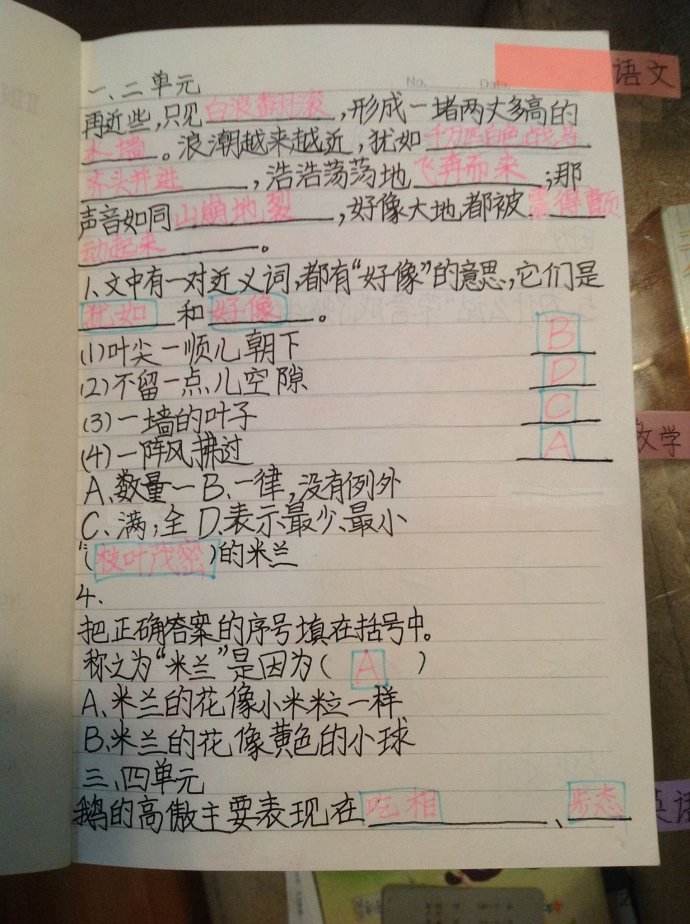 No. Date.
语文
一、二单元
再近些,只见白浪翻滚,形成一堵两丈多高的
水墙。浪潮越来越近,犹如千万匹白色战马
齐头并进,浩浩荡荡地飞奔而来;那
声音如同山崩地裂,好像大地都被震得颤
动起来。
1、文中有一对近义词,都有“好像”的意思,它们是
犹如和好像。
(1)叶尖一顺儿朝下 B
(2)不留一点儿空隙 D
(3)一墙的叶子 C
(4)一阵风拂过 A
A、数量一 B、一律,没有例外
C、满;全 D、表示最少、最小
(枝叶茂密)的米兰
4、
把正确答案的序号填在括号中。
称之为“米兰”是因为( A )
A、米兰的花像小米粒一样
B、米兰的花像黄色的小球
三、四单元
鹅的高傲主要表现在吃相、步态
数学
英语